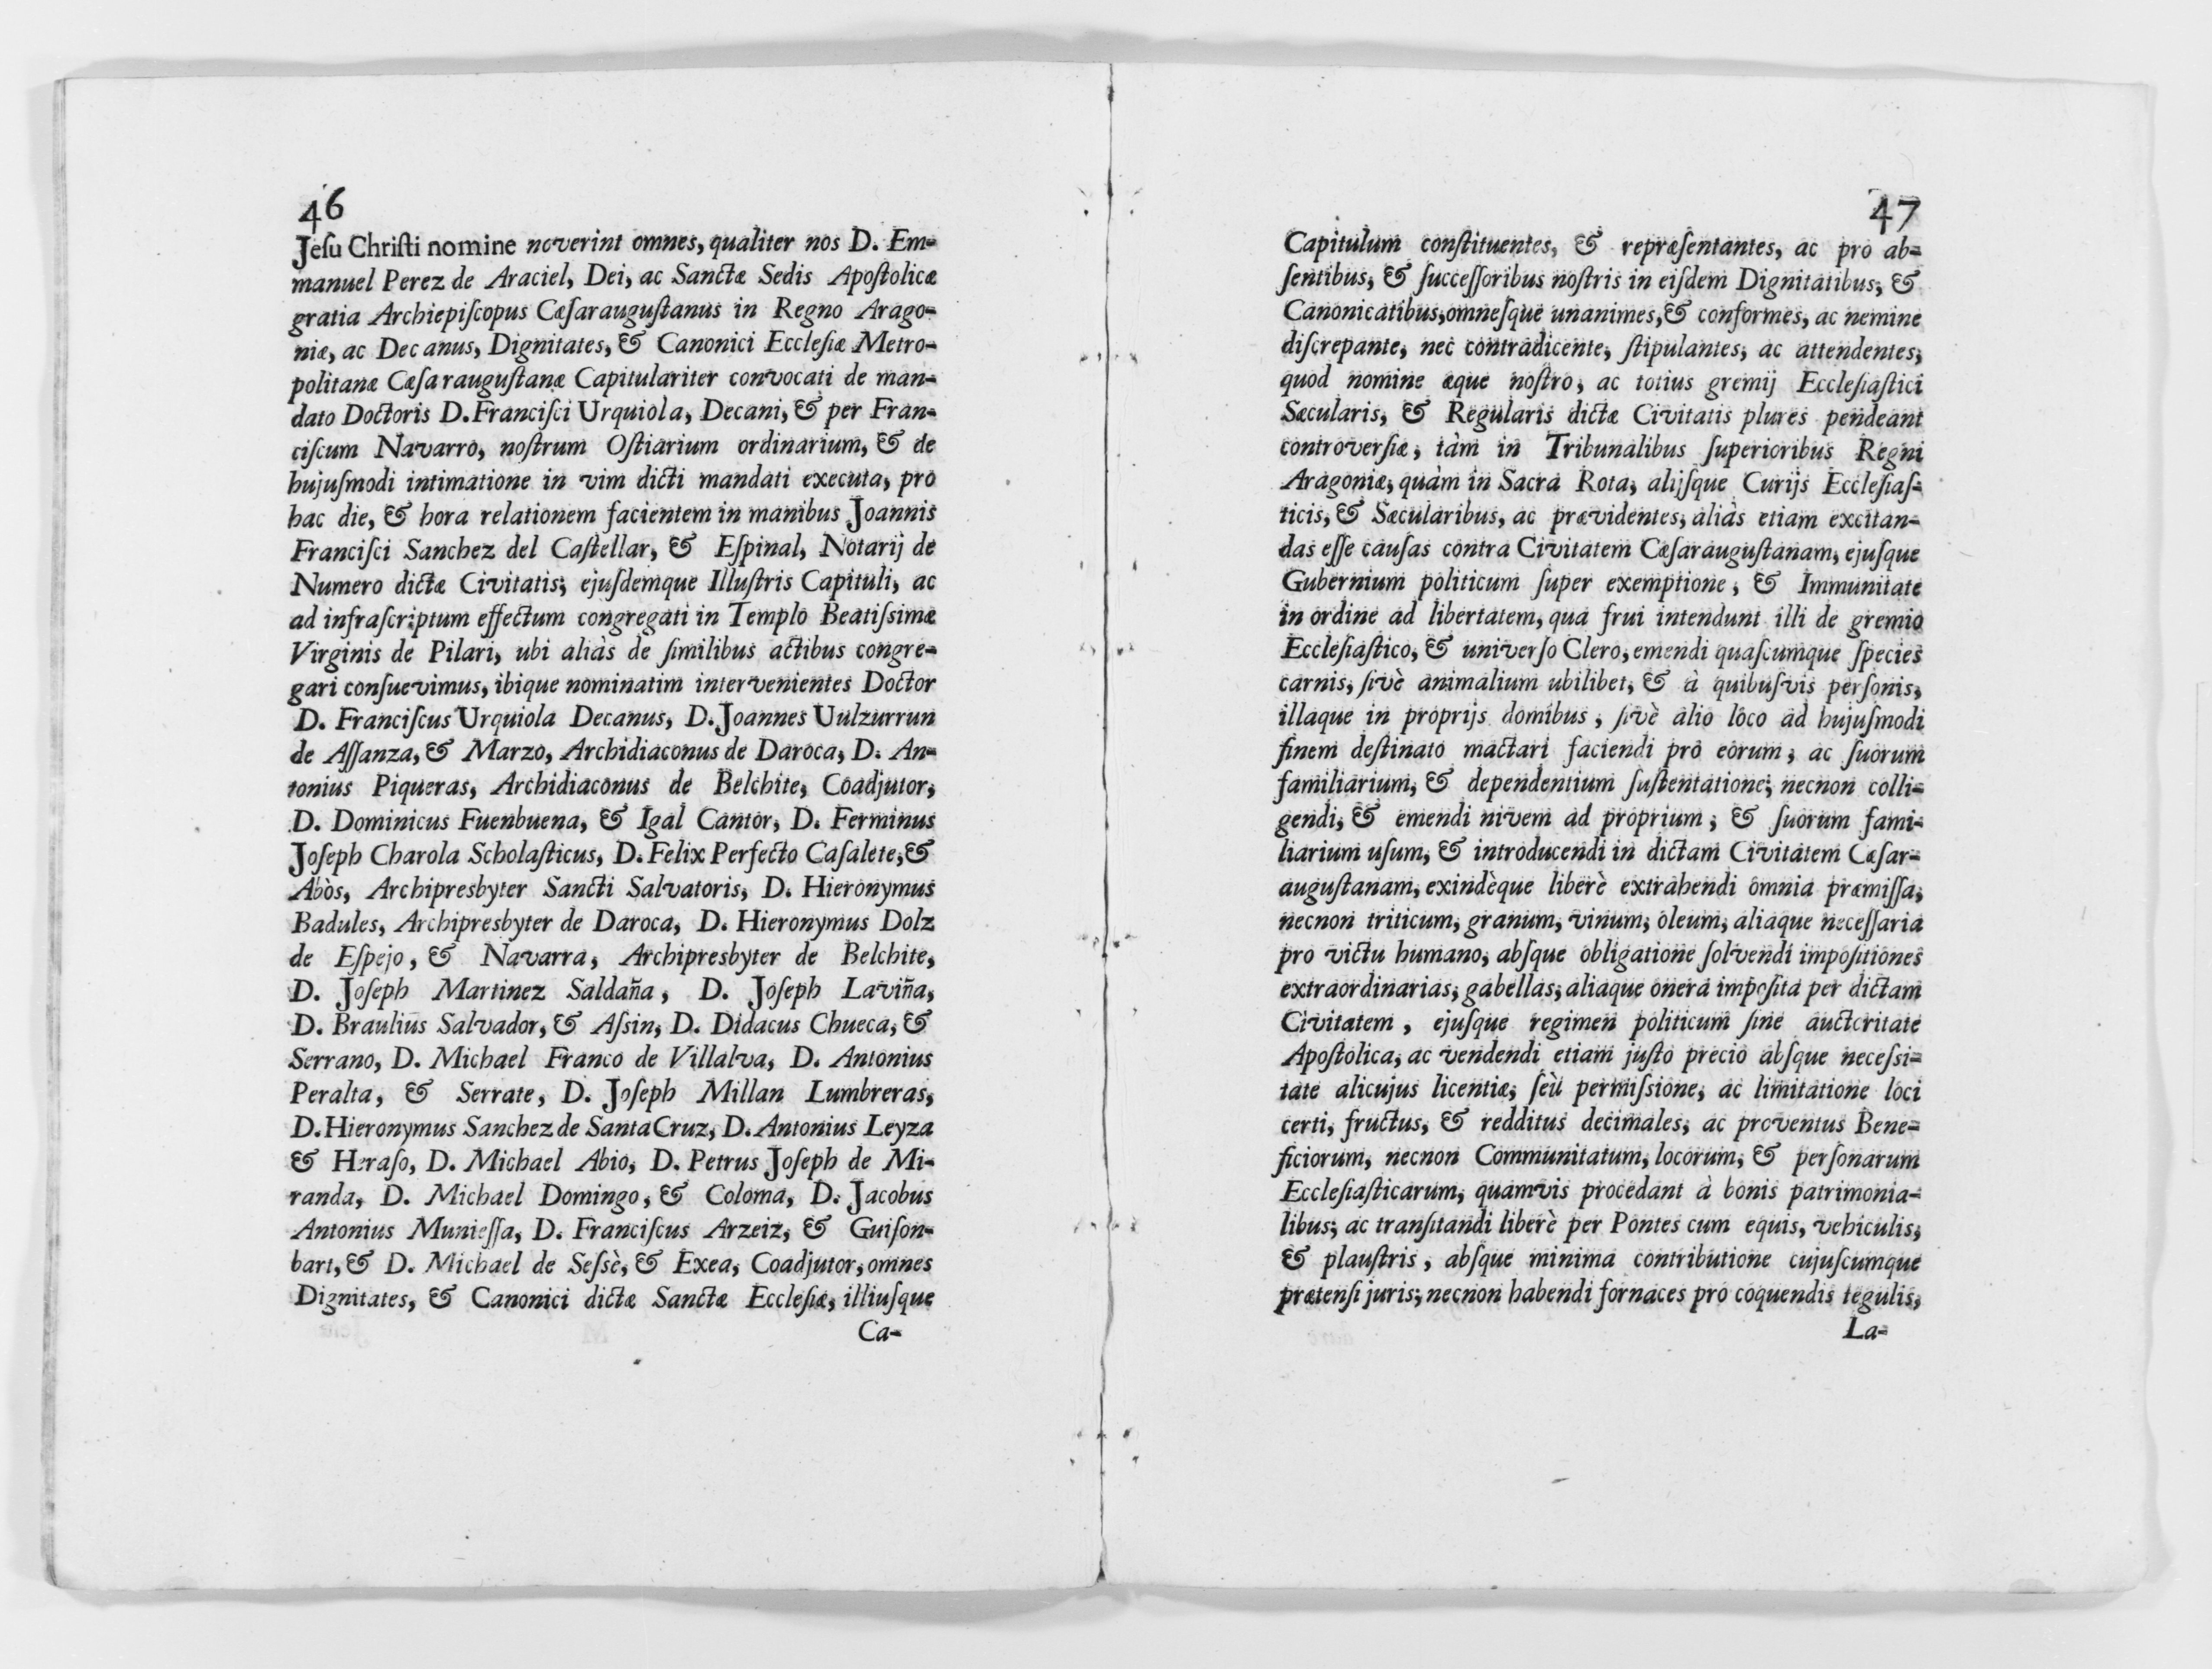 46
Jeſu Chriſti nomine noverint omnes, qualiter nos D. Em-
manuel Perez de Araciel, Dei, ac Sanctæ Sedis Apoſtolicæ
gratia Archiepiſcopus Cæſarauguſtanus in Regno Arago-
niæ, ac Decanus, Dignitates, & Canonici Eccleſiæ Metro-
politanæ Cæſarauguſtanæ Capitulariter convocati de man-
dato Doctoris D. Franciſci Urquiola, Decani, & per Fran-
ciſcum Navarro, noſtrum Oſtiarium ordinarium, & de
hujuſmodi intimatione in vim dicti mandati executa, pro
hac die, & hora relationem facientem in manibus Joannis
Franciſci Sanchez del Caſtellar, & Eſpinal, Notarij de
Numero dictæ Civitatis; ejuſdemque Illuſtris Capituli, ac
ad infraſcriptum effectum congregati in Templo Beatiſsimæ
Virginis de Pilari, ubi alias de ſimilibus actibus congre-
gari conſuevimus, ibique nominatim intervenientes Doctor
D. Franciſcus Urquiola Decanus, D. Joannes Uulzurrun
de Aſſanza, & Marzo, Archidiaconus de Daroca, D. An-
tonius Piqueras, Archidiaconus de Belchite, Coadjutor,
D. Dominicus Fuenbuena, & Igal Cantor, D. Ferminus
Joſeph Charola Scholaſticus, D. Felix Perfecto Caſalete, &
Abòs, Archipresbyter Sancti Salvatoris, D. Hieronymus
Badules, Archipresbyter de Daroca, D. Hieronymus Dolz
de Eſpejo, & Navarra, Archipresbyter de Belchite,
D. Joſeph Martinez Saldaña, D. Joſeph Laviña,
D. Braulius Salvador, & Aſsin, D. Didacus Chueca, &
Serrano, D. Michael Franco de Villalva, D. Antonius
Peralta, & Serrate, D. Joſeph Millan Lumbreras,
D. Hieronymus Sanchez de Santa Cruz, D. Antonius Leyza
& Heraſo, D. Michael Abio, D. Petrus Joſeph de Mi-
randa, D. Michael Domingo, & Coloma, D. Jacobus
Antonius Munieſſa, D. Franciſcus Arzeiz, & Guiſon-
bart, & D. Michael de Seſsè, & Exea, Coadjutor, omnes
Dignitates, & Canonici dictæ Sanctæ Eccleſiæ, illiuſque
Ca-
47
Capitulum conſtituentes, & repræſentantes, ac pro ab-
ſentibus, & ſucceſſoribus noſtris in eiſdem Dignitatibus, &
Canonicatibus, omneſque unanimes, & conformes, ac nemine
diſcrepante, nec contradicente, ſtipulantes, ac attendentes,
quod nomine æque noſtro, ac totius gremij Eccleſiaſtici
Sæcularis, & Regularis dictæ Civitatis plures pendeant
controverſiæ, tàm in Tribunalibus ſuperioribus Regni
Aragoniæ, quàm in Sacra Rota, alijſque Curijs Eccleſiaſ-
ticis, & Sæcularibus, ac prævidentes, aliàs etiam excitan-
das eſſe cauſas contra Civitatem Cæſarauguſtanam, ejuſque
Gubernium politicum ſuper exemptione, & Immunitate
in ordine ad libertatem, qua frui intendunt illi de gremio
Eccleſiaſtico, & univerſo Clero, emendi quaſcumque ſpecies
carnis, ſivè animalium ubilibet, & à quibuſvis perſonis,
illaque in proprijs domibus, ſivè alio loco ad hujuſmodi
finem deſtinato mactari faciendi pro eorum, ac ſuorum
familiarium, & dependentium ſuſtentatione; necnon colli-
gendi, & emendi nivem ad proprium, & ſuorum fami-
liarium uſum, & introducendi in dictam Civitatem Cæſar-
auguſtanam, exindèque liberè extrahendi omnia præmiſſa,
necnon triticum, granum, vinum, oleum, aliaque neceſſaria
pro victu humano, abſque obligatione ſolvendi impoſitiones
extraordinarias, gabellas, aliaque onera impoſita per dictam
Civitatem, ejuſque regimen politicum ſine auctoritate
Apoſtolica, ac vendendi etiam juſto precio abſque neceſsi-
tate alicujus licentiæ, ſeù permiſsione, ac limitatione loci
certi, fructus, & redditus decimales, ac proventus Bene-
ficiorum, necnon Communitatum, locorum, & perſonarum
Eccleſiaſticarum, quamvis procedant à bonis patrimonia-
libus; ac tranſitandi liberè per Pontes cum equis, vehiculis,
& plauſtris, abſque minima contributione cujuſcumque
prætenſi juris; necnon habendi fornaces pro coquendis tegulis,
La-